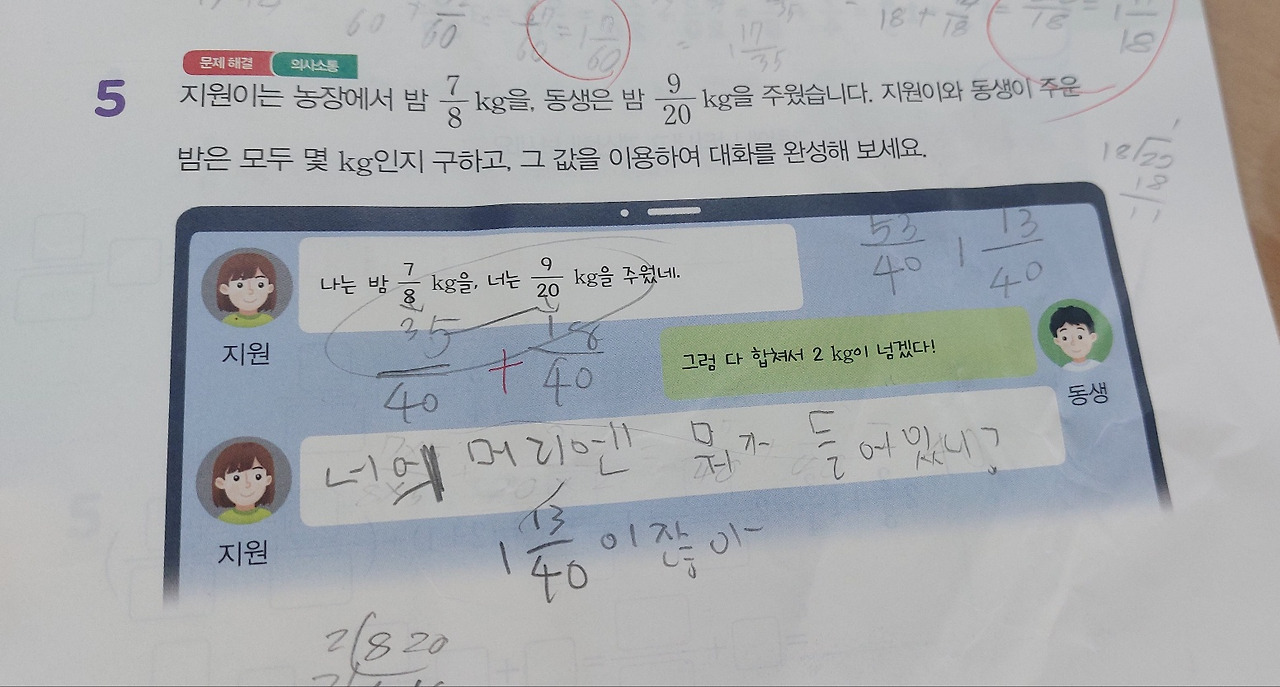 60 + 60 = 60 = 1 7/60
= 1 17/35
문제 해결 의사소통
5 지원이는 농장에서 밤 7/8 kg을, 동생은 밤 9/20 kg을 주웠습니다. 지원이와 동생이 주운
밤은 모두 몇 kg인지 구하고, 그 값을 이용하여 대화를 완성해 보세요.
18 20
18
53/40 1 13/40
나는 밤 7/8 kg을, 너는 9/20 kg을 주웠네.
지원
35/40 + 18/40
그럼 다 합쳐서 2 kg이 넘겠다!
동생
너의 머리엔 뭐가 들어있니?
지원
1 13/40 이잖아
2 8 20